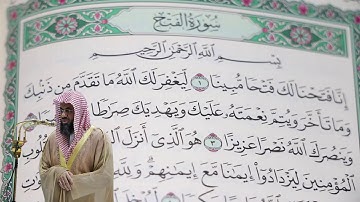 سُورَةُ الفَتْحِ
بِسْمِ اللَّهِ الرَّحْمَٰنِ الرَّحِيمِ
إِنَّا فَتَحْنَا لَكَ فَتْحًا مُّبِينًا ١ لِّيَغْفِرَ لَكَ اللَّهُ مَا تَقَدَّمَ مِن ذَنۢبِكَ
وَمَا تَأَخَّرَ وَيُتِمَّ نِعْمَتَهُۥ عَلَيْكَ وَيَهْدِيَكَ صِرَٰطًا
وَيَنصُرَكَ اللَّهُ نَصْرًا عَزِيزًا ٣ هُوَ الَّذِىٓ أَنزَلَ
الْمُؤْمِنِينَ لِيَزْدَادُوٓا۟ إِيمَٰنًا مَّعَ إِيمَٰنِهِمْ